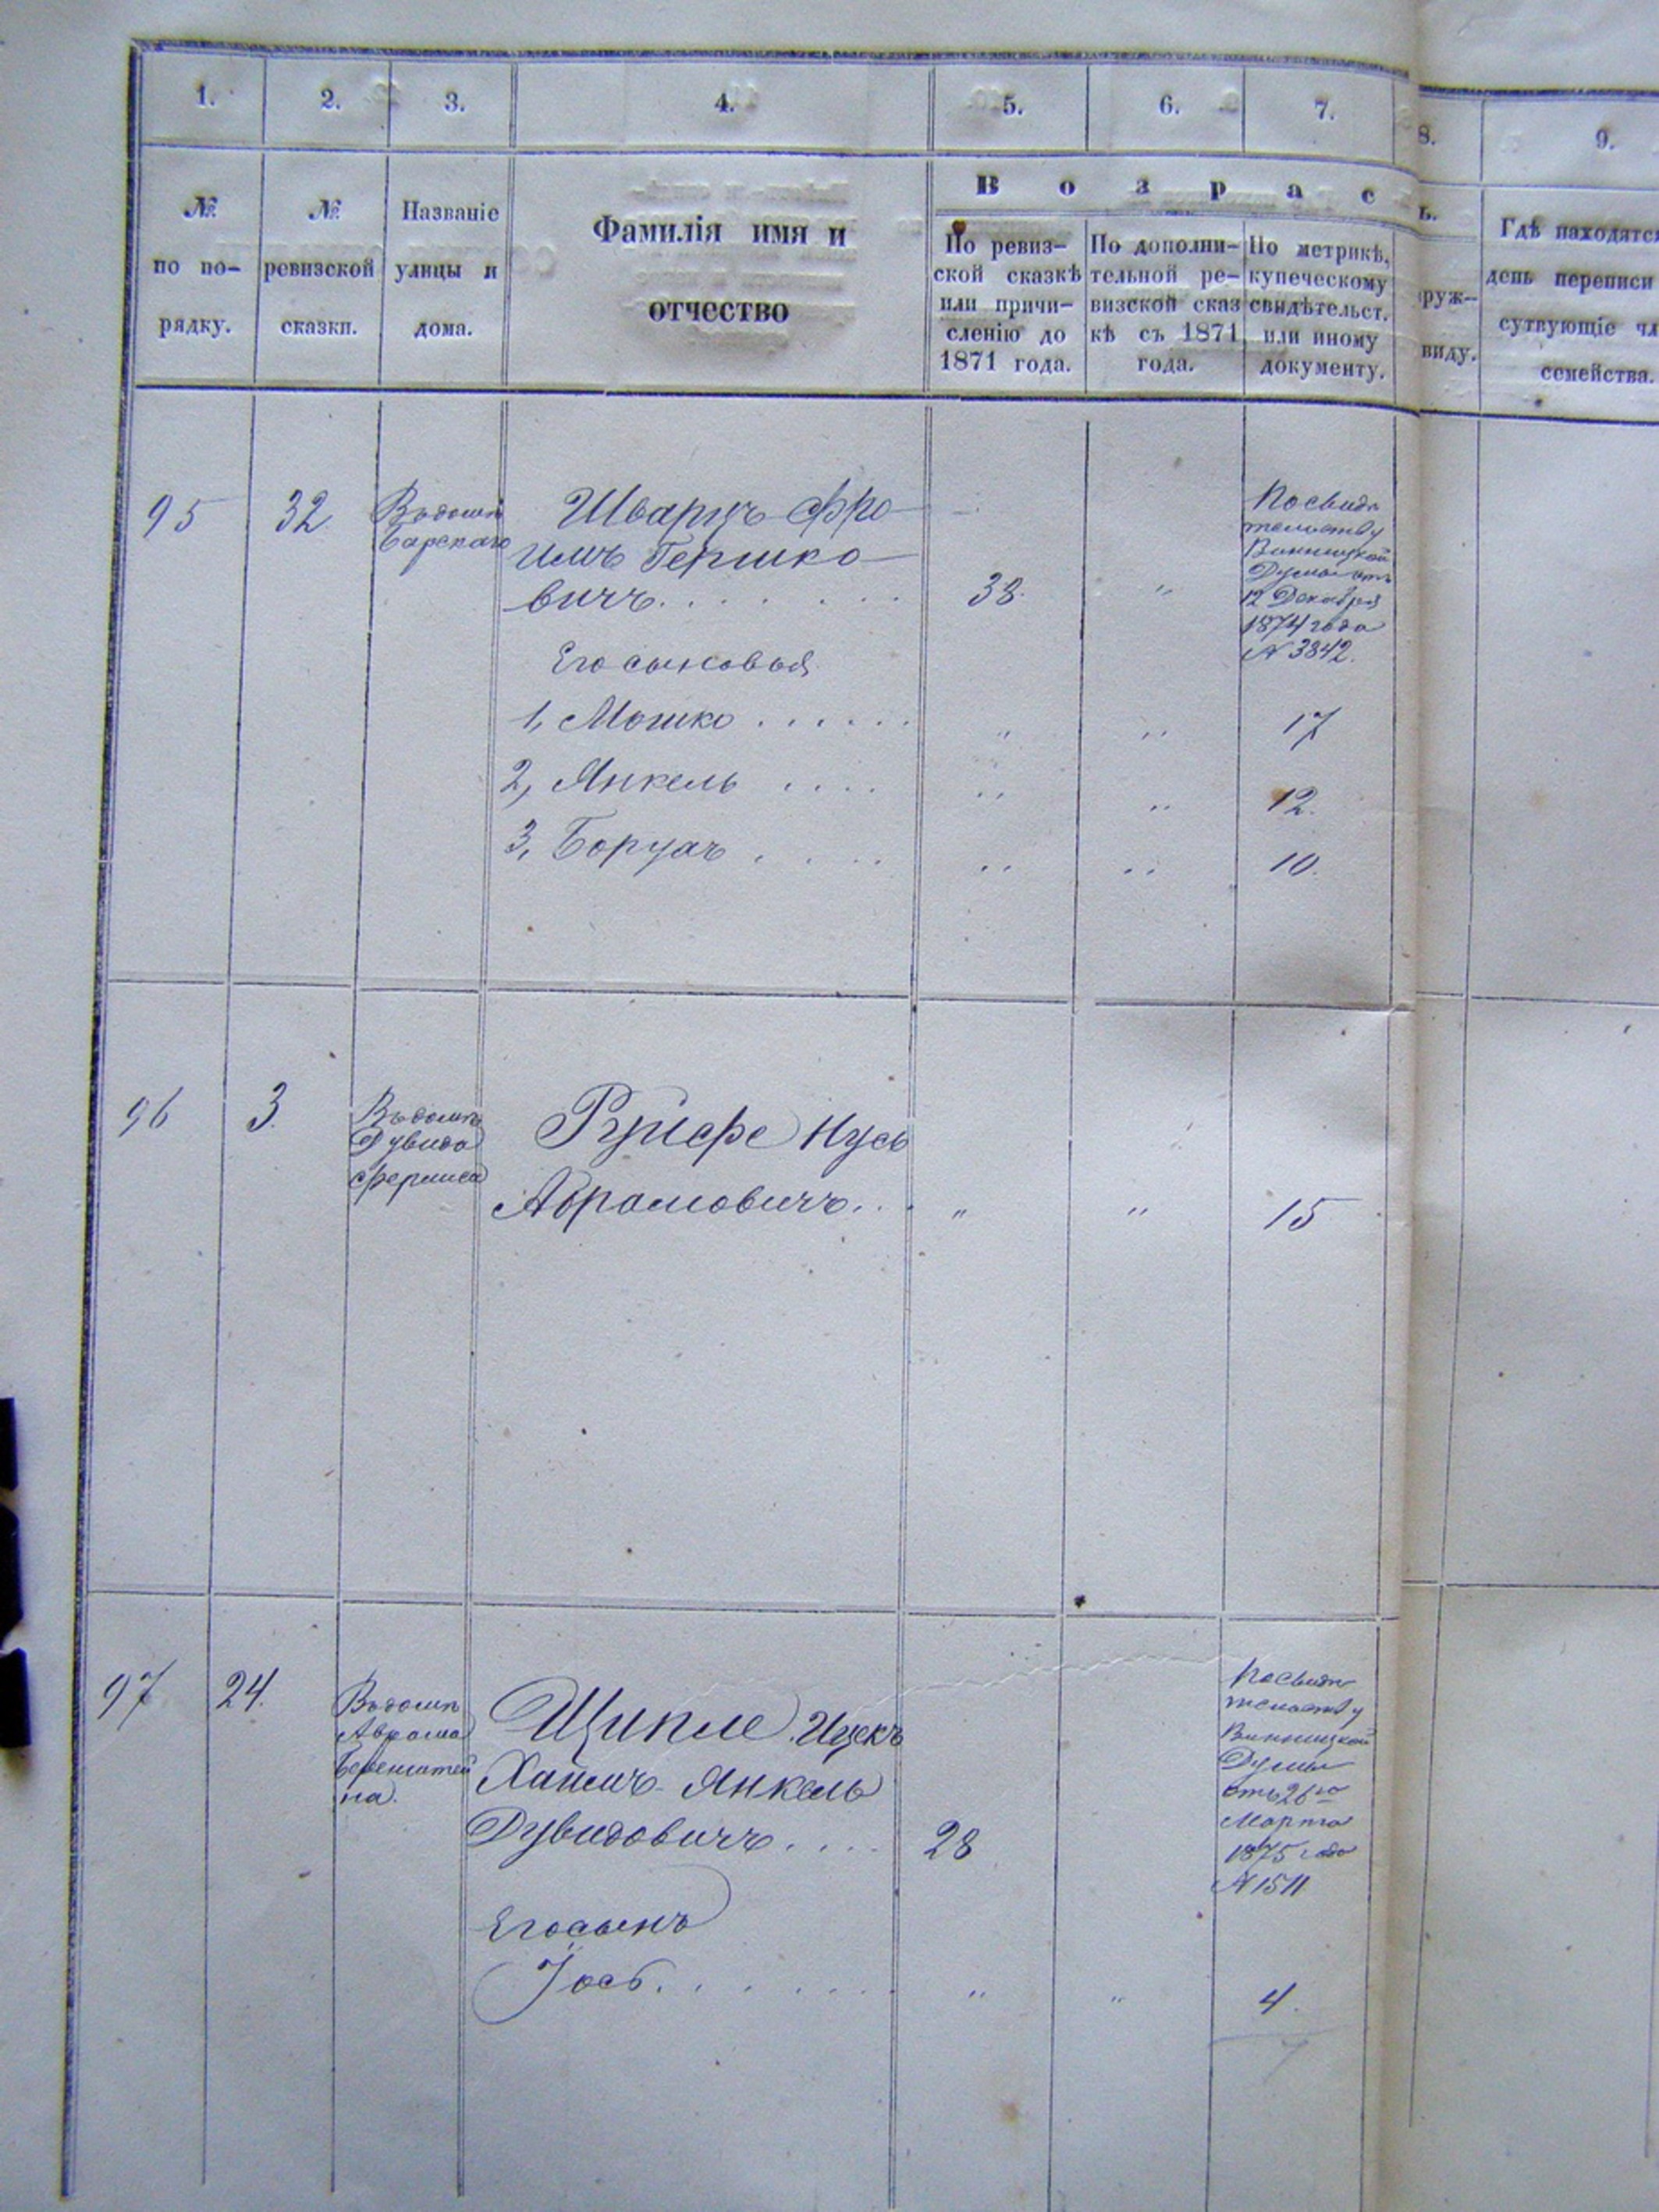 1.
2.
3.
4.
5.
6.
7.
8.
9.
№ по по-
рядку.
№
ревизской
сказки.
Названіе
улицы и
дома.
Фамилія имя и
отчество
В о з р а с
ь.
По ревиз-
ской сказкѣ
или причи-
сленію до
1871 года.
По дополни-
тельной ре-
визской сказ
кѣ съ 1871
года.
По метрикѣ,
купеческому
свидѣтельст.
или иному
документу.
руж-
виду.
Гдѣ находятся
день переписи
сутвующіе чл
семейства.
95
32
Въ домѣ
Барскаго
Шварцъ Фро
имъ Гершко
вичъ
38.
"
По свидѣ
тельству
Винницкой
Думы отъ
12 Декабря
1874 года
№ 3842.
Его сыновья
1, Мошко " " 17
2, Янкель " " 12.
3, Борухъ " " 10.
96
3.
Въ домѣ
Дувида
Нусь
Абрамовичъ " " 15
97
24.
Въ домѣ
Аврама
Беренштей
на.
Щипле Ицекъ
Хаимъ Янкель
Дувидовичъ
28
По свидѣ
тельству
Винницкой
Думы
отъ 26го
Марта
1875 года
№ 1511
Его сынъ
Іось " " 4.